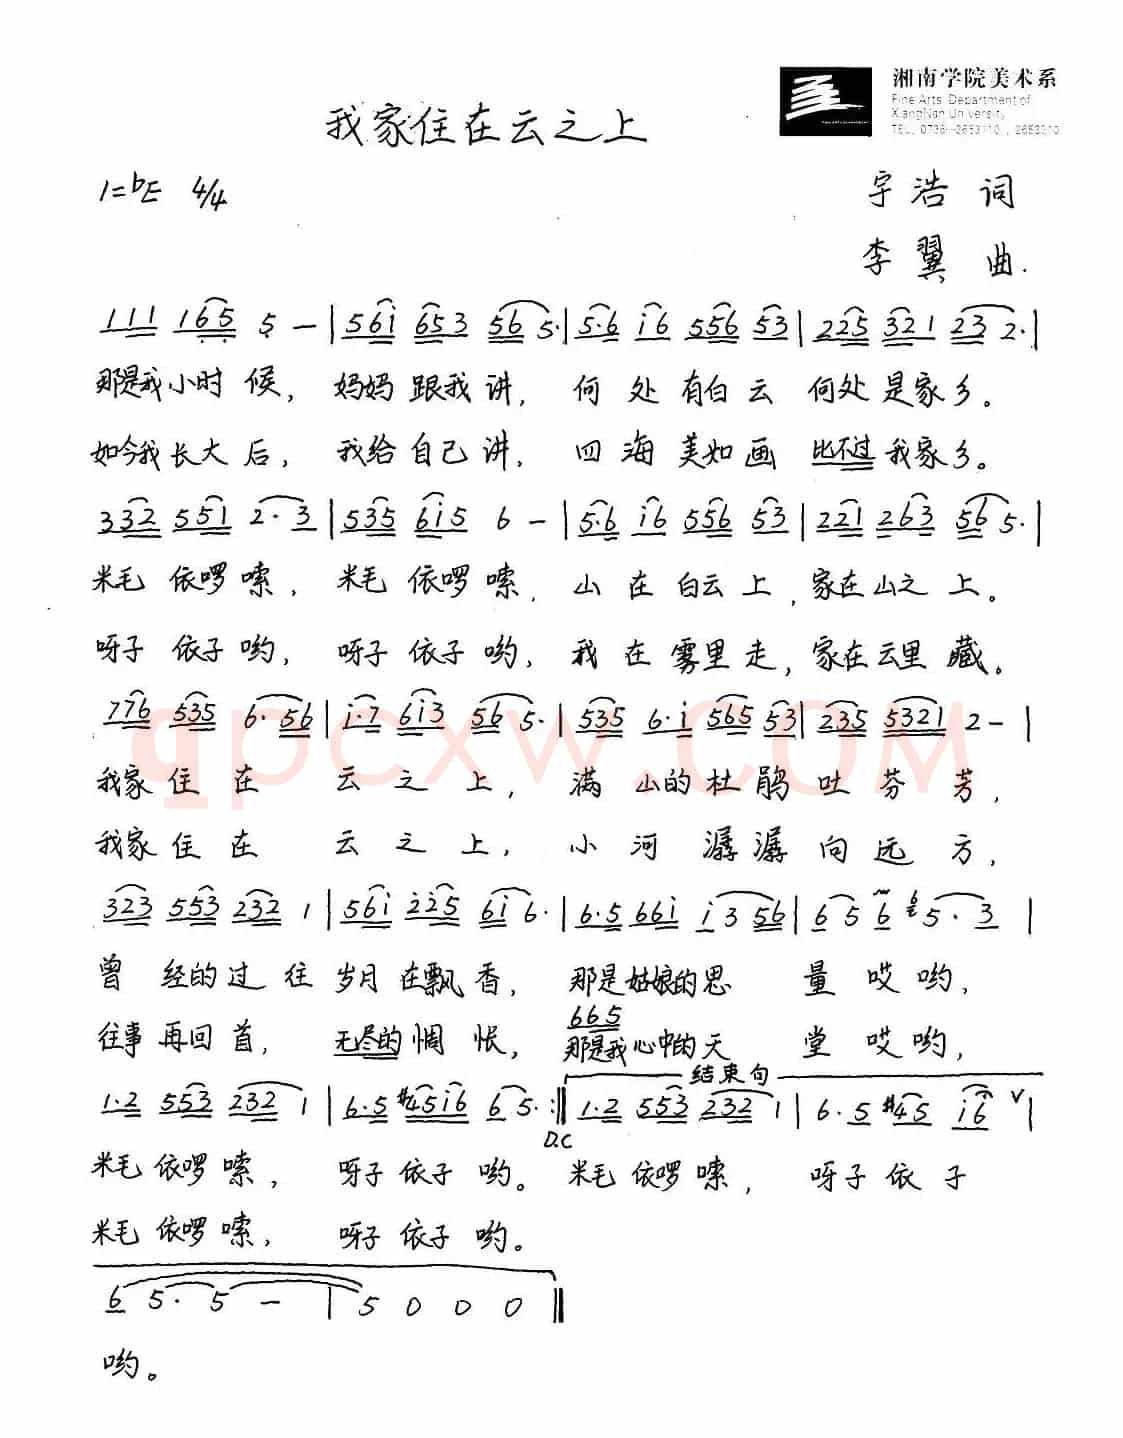 湘南学院美术系
Fine Arts Department of
XiangNan University
我家住在云之上
1=bE 4/4
宇浩 词
李翼 曲.
111 165 5 — | 56i 653 56 5· | 5·6 i6 556 53 | 225 321 23 2· |
那是我小时候, 妈妈跟我讲, 何处有白云 何处是家乡。
如今我长大后, 我给自己讲, 四海美如画 比不过我家乡。
332 551 2·3 | 535 6i5 6 — | 5·6 i6 556 53 | 221 263 56 5· |
米毛依啰嗦, 米毛依啰嗦, 山在白云上, 家在山之上。
呀子依子哟, 呀子依子哟, 我在雾里走, 家在云里藏。
776 535 6·56 | i·7 6i3 56 5· | 535 6·i 565 53 | 235 5321 2 — |
qpcxw.COM
我家住在 云之上, 满山的杜鹃吐芬芳,
我家住在 云之上, 小河潺潺向远方,
323 553 232 1 | 56i 225 6i 6· | 6·5 66i i3 56 | 6 5 6 6 5·3 |
曾经的过往 岁月在飘香, 那是姑娘的思 量哎哟,
665
往事再回首, 无尽的惆怅, 那是我心中的天 堂哎哟,
结束句
1·2 553 232 1 | 6·5 #45i6 6 5· :‖ 1·2 553 232 1 | 6·5 #45 i6 V |
D.C
米毛依啰嗦, 呀子依子哟。 米毛依啰嗦, 呀子依子
米毛依啰嗦, 呀子依子哟。
6 5· 5 — | 5 0 0 0 ‖
哟。